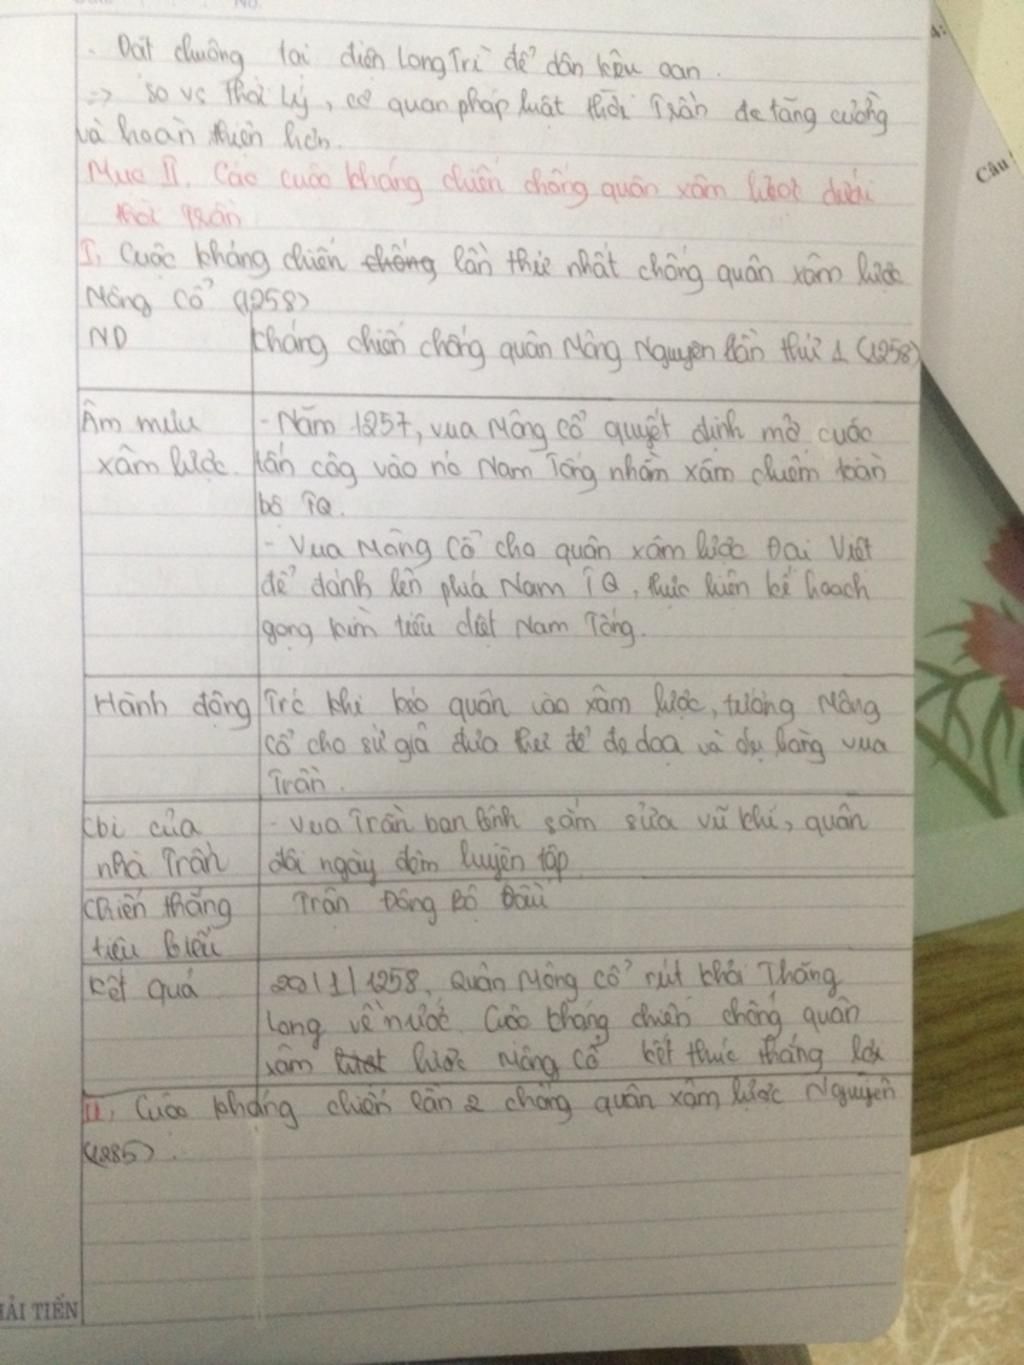 - Đặt chuông tại điện Long Trì để dân kêu oan.
=> so vs thời Lý, cơ quan pháp luật thời Trần đc tăng cường
và hoàn thiện hơn.
Mục II. Các cuộc kháng chiến chống quân xâm lược dưới
thời Trần
I, Cuộc kháng chiến chống lần thứ nhất chống quân xâm lược
Mông Cổ (1258)
ND
kháng chiến chống quân Mông Nguyên lần thứ 1 (1258)
Âm mưu
xâm lược.
- Năm 1257, vua Mông Cổ quyết định mở cuộc
tấn côg vào nc Nam Tống nhằm xâm chiếm toàn
bộ TQ.
- Vua Mông Cổ cho quân xâm lược Đại Việt
để đánh lên phía Nam TQ, thực hiện kế hoạch
gọng kìm tiêu diệt Nam Tống.
Hành động
Trc khi kéo quân vào xâm lược, tướng Mông
Cổ cho sứ giả đưa thư để đe doạ và dụ hàng vua
Trần.
Cbị của
nhà Trần
- Vua Trần ban lệnh sắm sửa vũ khí, quân
đội ngày đêm luyện tập
Chiến thắng
tiêu biểu
Trận Đông Bộ Đầu
Kết quả
29/1/1258, Quân Mông Cổ rút khỏi Thăng
Long về nước. Cuộc kháng chiến chống quân
xâm lược Mông Cổ kết thúc thắng lợi
II, Cuộc kháng chiến lần 2 chống quân xâm lược Nguyên
(1285).
Câu
ẢI TIẾN